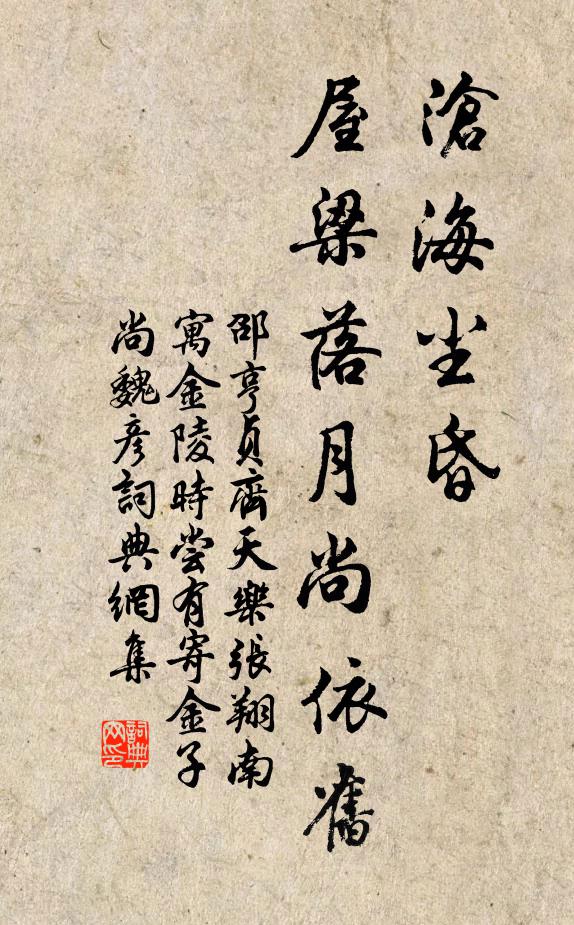 滄海塵昏
屋梁落月尚依舊
邵亨貞齊天樂張翔南
寓金陵時嘗有寄金子
尚魏彥詞典網集
詞典網印